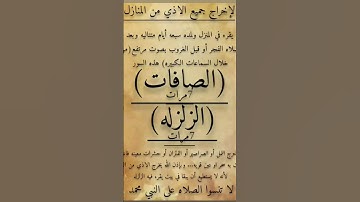 لإخراج جميع الاذي من المنازل
يقره في المنزل ولمده سبعه أيام متتاليه وبعد
صلاه الفجر أو قبل الغروب بصوت مرتفع (من
خلال السماعات الكبيره) هذه السور
(الصافات)
7 مرات
(الزلزله)
7 مرات
النمل أو الصراصير أو الفئران أو حشرات معينه
لأنه لا يستطيع أن يبقا في بيت يقره فيه الزلزله
لا تنسوا الصلاه على النبي محمد